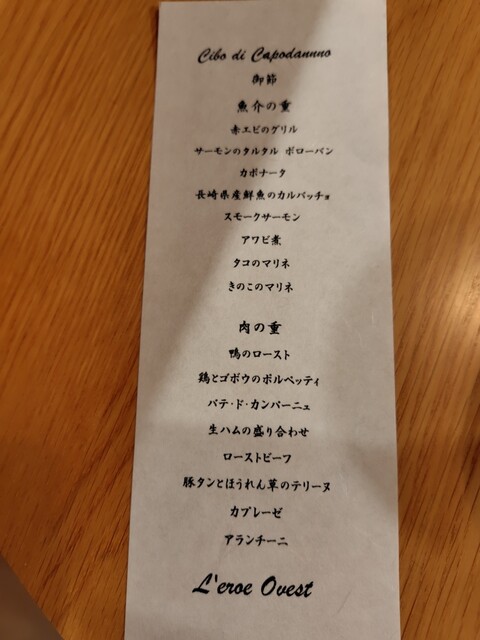 Cibo di Capodannno
御節
魚介の重
赤エビのグリル
サーモンのタルタル ボローバン
カポナータ
長崎県産鮮魚のカルパッチョ
スモークサーモン
アワビ煮
タコのマリネ
きのこのマリネ
肉の重
鴨のロースト
鶏とゴボウのポルペッティ
パテ・ド・カンパーニュ
生ハムの盛り合わせ
ローストビーフ
豚タンとほうれん草のテリーヌ
カプレーゼ
アランチーニ
L'eroe Ovest